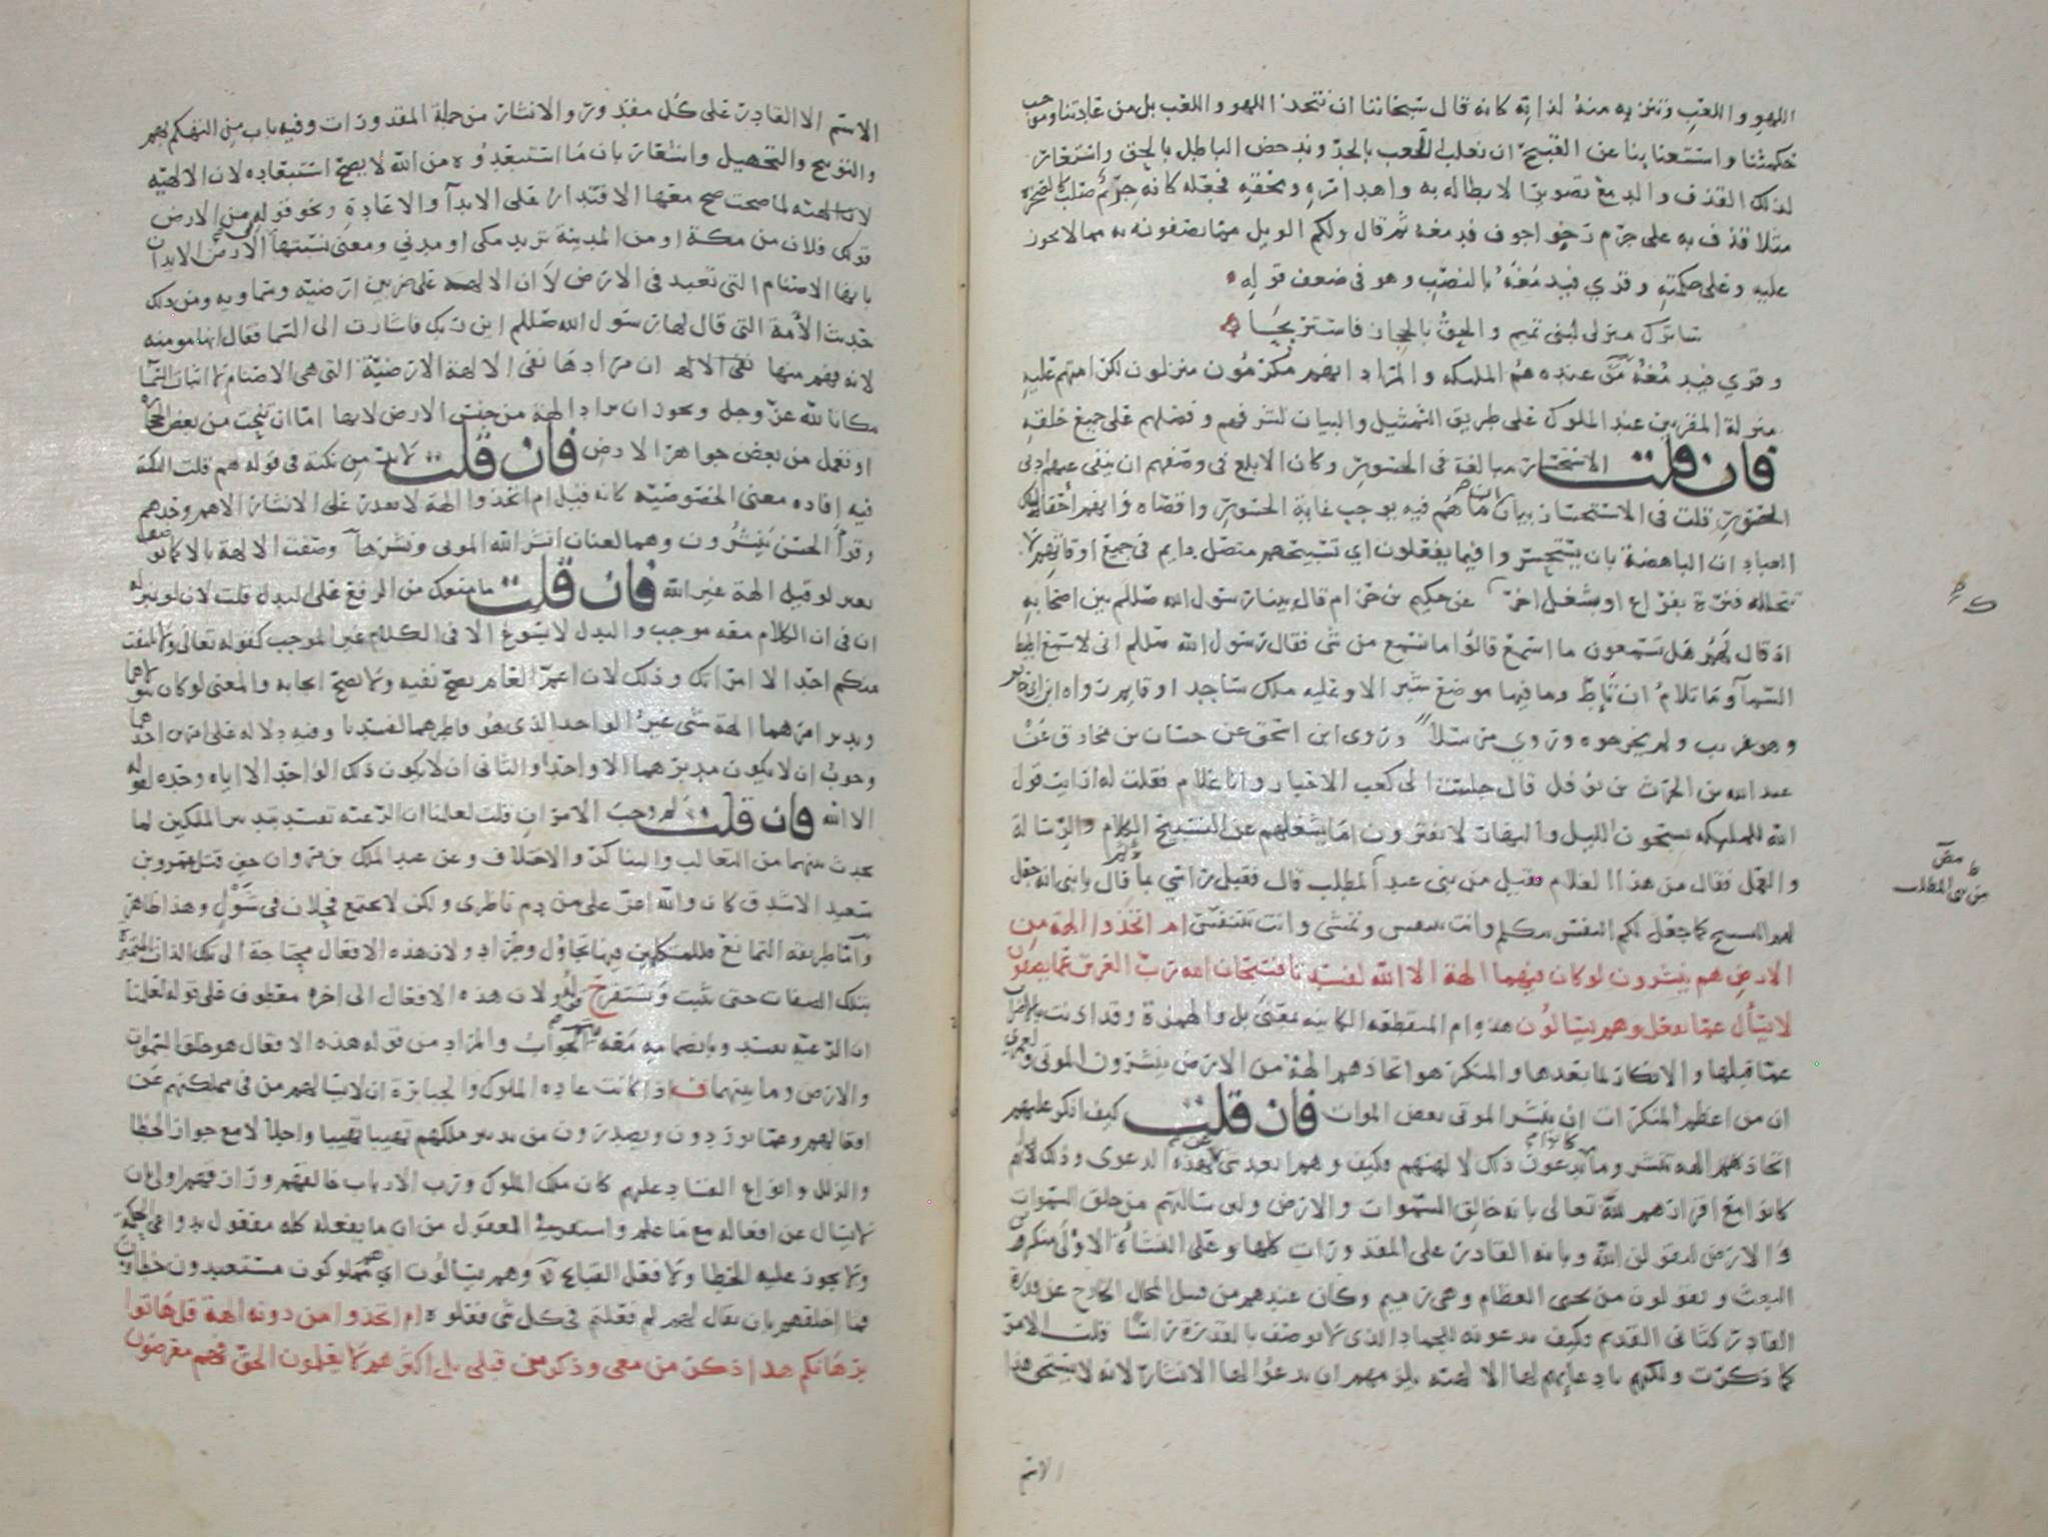 اللهو واللعب وتنزيه منه لذاته كانه قال سبحاننا ان نتخذ اللهو واللعب بل من عادتنا وموجب
حكمتنا واستغنائنا عن القبيح ان نغلب اللعب بالجد وندحض الباطل بالحق واستعار
لذلك القذف والدمغ تصويرا لابطاله به واهداره ومحقه فجعله كانه جرم صلب كالصخرة
مثلا قذف به على جرم رخو اجوف فدمغه ثم قال ولكم الويل مما تصفونه به مما لا يجوز
عليه وعلى حكمته وقري فيدمغه بالنصب وهو في ضعف قوله
ساترك منزلي لبني تميم والحق بالحجاز فاستريحا
وقري فيدمغه ومن عنده هم الملىكه والمراد انهم مكرمون منزلون لكرامتهم عليه
منزلة المقربين عند الملوك على طريق التمثيل والبيان لشرفهم وفضلهم على جميع خلقه
فان قلت الاستحسار مبالغة في الحسور وكان الابلغ في وصفهم ان ينفى عنهم ادنى
الحسور قلت في الاستحسار بيان ان ما هم فيه يوجب غاية الحسور واقصاه وانهم احقاء لتلك
العبادات الباهضة بان يستحسروا فيما يفعلون اي تسبيحهم متصل دايم في جميع اوقاتهم لا
تتخلله فترة بفراغ او بشغل اخر عن حكيم بن حزام قال بينا رسول الله صللم بين اصحابه
اذ قال لهم هل تسمعون ما اسمع قالوا ما نسمع من شي فقال رسول الله صللم اني لاسمع اطيط
السما وما تلام ان تاط وما فيها موضع شبر الا وعليه ملك ساجد او قايم رواه ابن ابي حاتم
وهو غريب ولم يخرجوه وروي مرسلا وروى ابن اسحق عن حسان بن مخارق عن
عبد الله بن الحرث بن نوفل قال جلست الى كعب الاحبار وانا غلام فقلت له ارايت قول
الله للملىكه يسبحون الليل والنهار لا يفترون اما يشغلهم عن التسبيح الكلام والرسالة
والعمل فقال من هذا الغلام فقيل من بني عبد المطلب قال فقبل راسي ثم قال يا بني انه جعل
لهم التسبيح كما جعل لكم النفس تتكلم وانت تتنفس وتمشي وانت تتنفس ام اتخذوا الهة من
الارض هم ينشرون لو كان فيهما الهة الا الله لفسدتا فسبحان الله رب العرش عما يصفون
لا يسأل عما يفعل وهم يسالون هذه ام المنقطعه الكاينه بمعنى بل والهمزة وقد اذنت بالاضراب
عما قبلها والانكار لما بعدها والمنكر هو اتخاذهم الهة من الارض ينشرون الموتى ولعمري
ان من اعظم المنكرات ان ينشر الموتى بعض الموات فان قلت كيف انكر عليهم
اتخاذ هم الهة تنشر وما كانوا يدعون ذلك لالهتهم وكيف وهم ابعد شي عن هذه الدعوى وذلك لانهم
كانوا مع اقرارهم لله تعالى بانه خالق السموات والارض ولىن سالتهم من خلق السموات
والارض ليقولن الله وبانه القادر على المقدورات كلها وعلى النشاة الاولى منكرين
البعث ويقولون من يحيى العظام وهي رميم وكان عندهم من قبيل المحال الخارج عن قدرة
القادر كثاني القديم وكيف يدعونه للجماد الذي لا يوصف بالقدرة راسا قلت الامر
كما ذكرت ولكنهم بادعايهم لها الالهيه يلزمهم ان يدعوا لها الانشار لانه لا يستحق هذا
الاسم
كه
مص
من بني المطلب
الاسم الا القادر على كل مقدور والانشار من جملة المقدورات وفيه باب من التهكم بهم
والتوبيخ والتجهيل واشعار بان ما استبعدوه من الله لا يصح استبعاده لان الالهيه
لما صحت صح معها الاقتدار على الابدا والاعادة ونحو قوله من الارض
قولك فلان من مكة او من المدينة تريد مكي او مدني ومعنى نسبتها الى الارض الايذان
بانها الاصنام التي تعبد في الارض لان الالهة على ضربين ارضيه وسماويه ومن ذلك
حديث الأمة التي قال لها رسول الله صللم اين ربك فاشارت الى السما فقال انها مومنه
لانه فهم منها ان مرادها نفي الالهة الارضية التي هي الاصنام لا اثبات السما
مكانا لله عز وجل ويجوز ان يراد الهة من جنس الارض لانها اما ان تنحت من بعض الحجارة
او تعمل من بعض جواهر الارض فان قلت لا بد من نكتة في قوله هم قلت النكتة
فيه افاده معنى الخصوصيه كانه قيل ام اتخذوا الهة لا يقدر على الانشار الا هم وحدهم
وقرأ الحسن ينشرون وهما لغتان انشر الله الموتى ونشرها وصفت الالهة بالا كما توصف
بغير لو قيل الهة غير الله فان قلت ما منعك من الرفع على البدل قلت لان لو بمنزلة
ان في ان الكلام معه موجب والبدل لا يسوغ الا في الكلام غير الموجب كقوله تعالى ولا يلتفت
منكم احد الا امراتك وذلك لان اعم العام يصح نفيه ولا يصح ايجابه والمعنى لو كان يتولاهما
ويدبر امرهما الهة شتى غير الواحد الذي هو فاطرهما لفسدتا وفيه دلاله على امرين احدهما
وجوب ان لا يكون مدبرهما الا واحدا والثاني ان لا يكون ذلك الواحد الا اياه وحده لقوله
الا الله فان قلت لم وجب الامران قلت لعلمنا ان الرعيه تفسد بتدبير الملكين لما
يحدث بينهما من التغالب والتناكر والاختلاف وعن عبد الملك بن مروان حين قتل عمرو بن
سعيد الاشدق كان والله اعز علي من دم ناظري ولكن لا يجتمع فحلان في شول وهذا ظاهر
واما طريقه التمانع فللمتكلمين فيها تجاول وطراد ولان هذه الافعال محتاجة الى تلك الذات المتميزة
بتلك الصفات حتى تثبت وتستقر ولان هذه الافعال الى اخره معطوف على قوله لعلمنا
ان الرعيه تفسد وبانضمامه معه يتم الجواب والمراد من قوله هذه الافعال هو خلق السموات
والارض وما بينهما ف اذا كانت عاده الملوك والجبابرة ان لا يسالهم من في مملكتهم عن
افعالهم وعما يوردون ويصدرون من تدبير ملكهم تهيبا تهيبا واجلالا مع جواز الخطا
والزلل وانواع الفساد عليهم كان ملك الملوك ورب الارباب خالقهم ورازقهم اولى بان
لا يسال عن افعاله مع ما علم واستقر في العقول من ان ما يفعله كله مفعول بدواعي الحكمة
ولا يجوز عليه الخطا ولا فعل القبايح وهم يسالون اي هم مملوكون مستعبدون خطاون
فما اخلقهم بان يقال لهم لم فعلتم في كل شي فعلوه ام اتخذوا من دونه الهة قل هاتوا
برهانكم هذا ذكر من معي وذكر من قبلي بل اكثرهم لا يعلمون الحق فهم معرضون